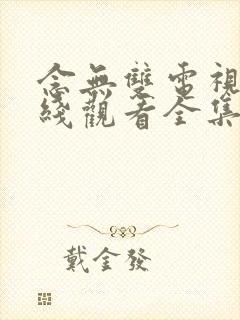 念無雙電視
綫觀看全集
戴金發